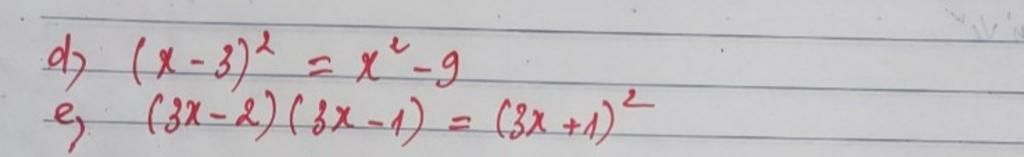 d, (x - 3)² = x² - 9
e, (3x - 2)(3x - 1) = (3x + 1)²